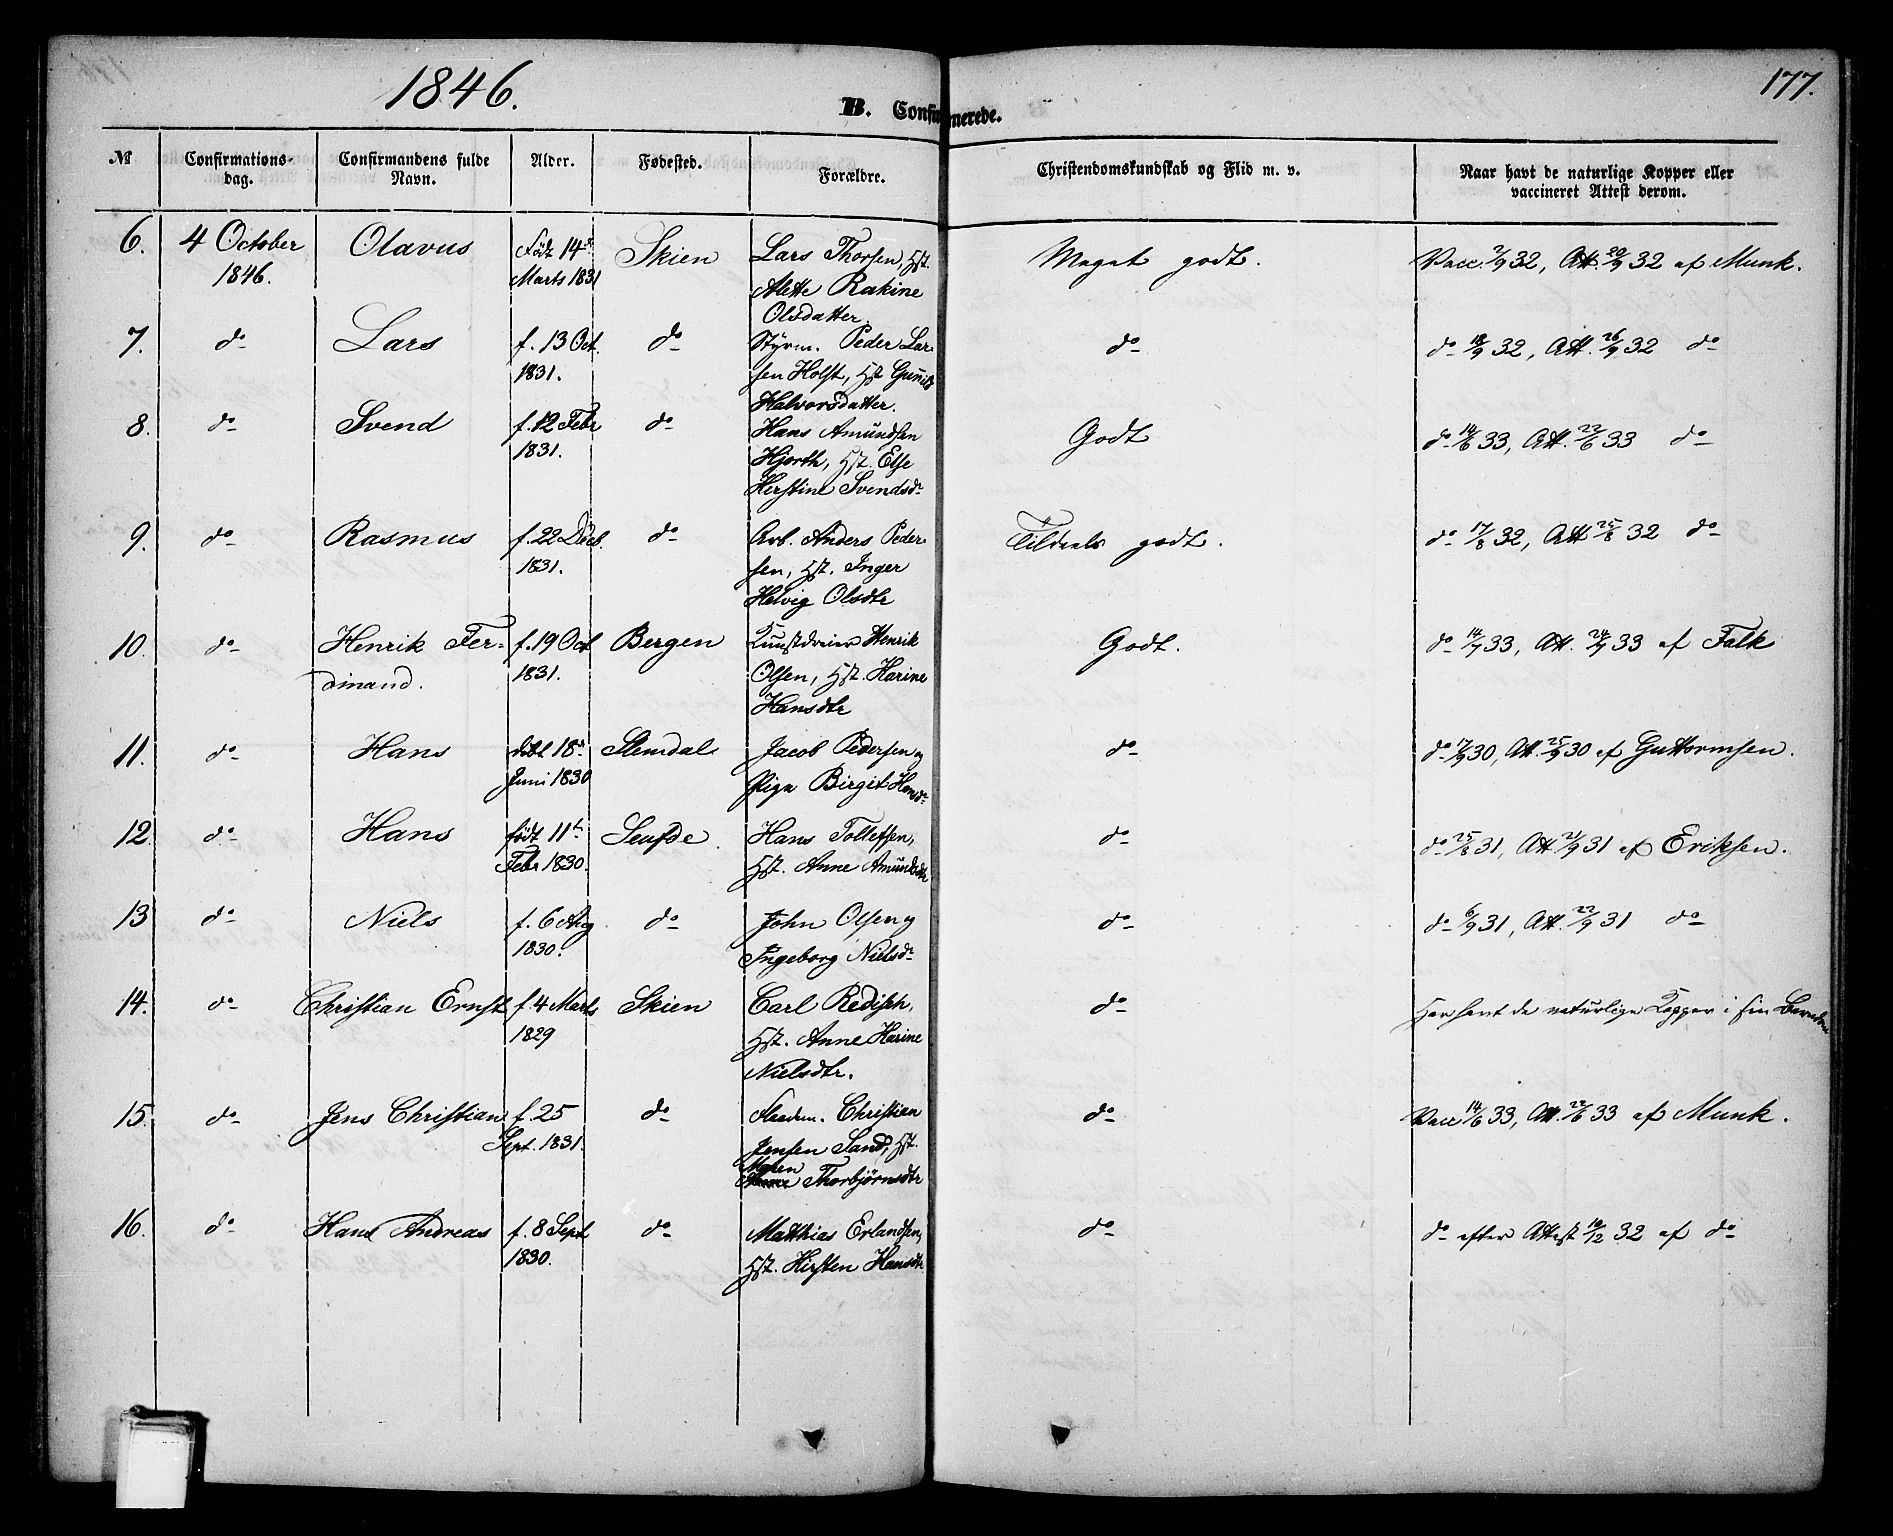 1846.
177.
B. Confirmerede.
№
Confirmations-dag.
Confirmandens fulde Navn.
Alder.
Fødested.
Forældre.
Christendomskundskab og Flid m. v.
Naar havt de naturlige Kopper eller vaccineret Attest derom.
6. 4 October Olavus Født 14de Skien Lars Thorsen, Hst. Meget godt. Vacc. 2/9 32, Att. 20/9 32 af Munk.
1846. Marts 1831 Alette Rakine
Olsdatter.
7. do Lars f. 13 Oct. do Styrm. Peder Lar- do do 18/9 32, Att. 26/9 32 do
1831. sen Holst, Hst Gunild
Halvorsdatter.
8. do Svend f. 12 Febr do Hans Amundsen Godt do 14/6 33, Att. 22/6 33 do
1831. Hjorth, Hst. Else
Kerstine Svendsdr
9. do Rasmus f. 22 Dec. do Arb. Anders Peder- Tildeels godt. do 17/8 32, Att 25/8 32 do
1831. sen, Hst. Inger
Helvig Olsdtr
10. do Henrik Fer- f. 19 Oct Bergen Kunstdreier Henrik Godt. do 14/9 33, Att. 24/9 33 af Falk
dinand. 1831. Olsen, Hst. Karine
Hansdtr
11. do Hans døbt 18de Slemdal Jacob Pedersen og do do 17/9 30, Att. 25/9 30 af Guttormsen.
Juni 1830 Pige Birgit Hansdr
12 do Hans født 11te Seufde. Hans Tollefsen, do do 25/8 31, Att. 21/9 31 af Eriksen.
Febr 1830. Hst. Anne Amundsdtr
13 do Niels f. 6 Aug do John Olsen og do do 6/9 31, Att. 22/9 31 do
1830. Ingeborg Nielsdr
14. do Christian Ernst f. 4 Marts Skien Carl Redisch, do Har havt de naturlige Kopper i sin Barndom
1829 Hst. Anne Karine
Nielsdtr.
15. do Jens Christian f. 25 do Christian do Vacc 14/6 33, Att. 22/6 33 af Munk.
Sept. 1831. Jensen Sand, Hst.
Maren
Thorbjørnsdtr
16. do Hans Andreas f. 8 Sept do Matthias Erlandsen, do do efter Attest 10/12 32 af do
1830. Hst. Kirsten Hansdtr